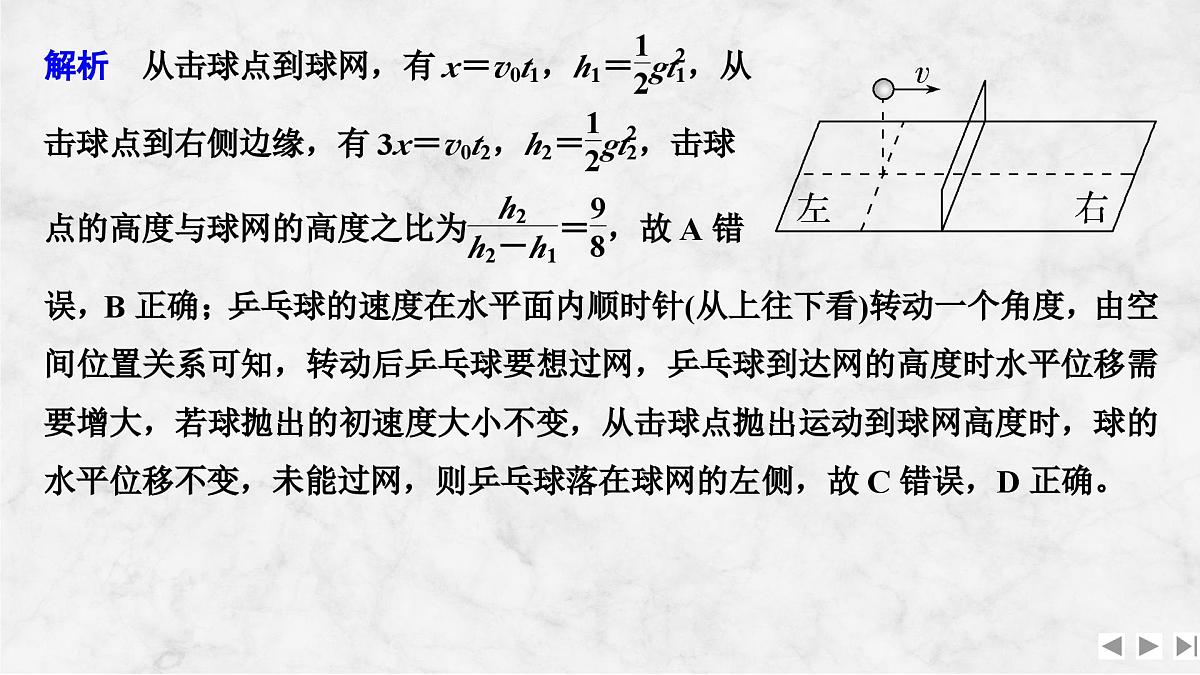 解析　从击球点到球网，有 x＝v₀t₁，h₁＝\frac{1}{2}gt₁²，从
击球点到右侧边缘，有 3x＝v₀t₂，h₂＝\frac{1}{2}gt₂²，击球
点的高度与球网的高度之比为\frac{h₂}{h₂－h₁}＝\frac{9}{8}，故 A 错
误，B 正确；乒乓球的速度在水平面内顺时针(从上往下看)转动一个角度，由空
间位置关系可知，转动后乒乓球要想过网，乒乓球到达网的高度时水平位移需
要增大，若球抛出的初速度大小不变，从击球点抛出运动到球网高度时，球的
水平位移不变，未能过网，则乒乓球落在球网的左侧，故 C 错误，D 正确。
v
左
右